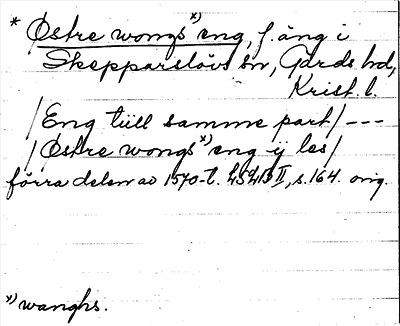 * Østre wongs x) eng, f. äng i
Skepparslövs sn, Gärds hd,
Krist. l.
/Eng tiill samme part/---
/Østre wongs x) eng ij les/
förra delen av 1570-t. LSAB II, s. 164. orig.
x) wanghs.